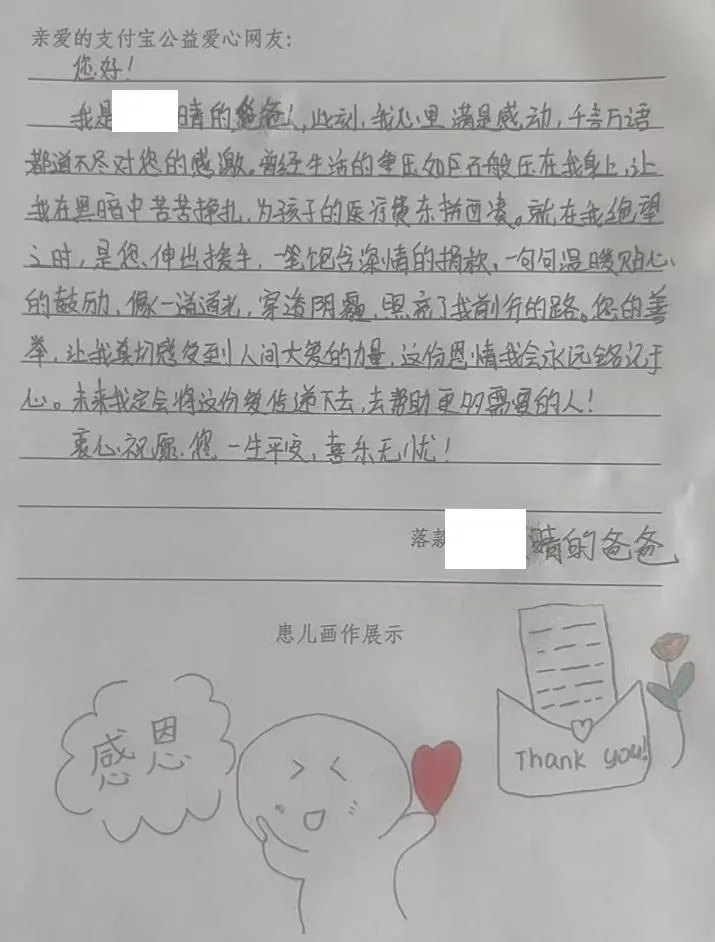 亲爱的支付宝公益爱心网友:
您好！
我是 晴的爸爸，此刻，我心里满是感动，千言万语
都道不尽对您的感激。曾经生活的重压如巨石般压在我身上，让
我在黑暗中苦苦挣扎，为孩子的医疗费东拼西凑。就在我绝望
之时，是您伸出援手，一笔饱含深情的捐款，一句句温暖贴心
的鼓励，像一道道光，穿透阴霾，照亮了我前行的路。您的善
举，让我真切感受到人间大爱的力量，这份恩情我会永远铭记于
心。未来我定会将这份爱传递下去，去帮助更多需要的人！
衷心祝愿您一生平安，喜乐无忧！
落款 晴的爸爸
患儿画作展示
感恩
Thank you!